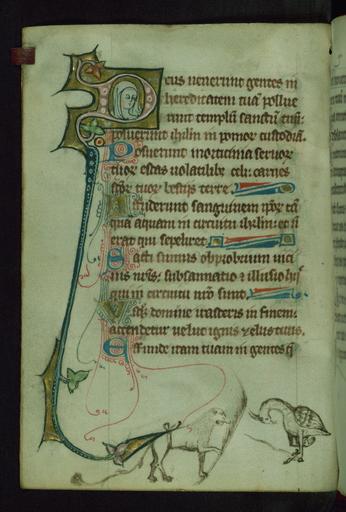 eus uenerunt gentes in
hereditatem tuã pollue
runt templũ sanctũ tuũ:
posuerunt ihrlm in pomor custodiã.
Posuerunt morticina seruor
tuor escas uolatilibz celi: carnes
scõr tuor bestijs terre.
Effuderunt sanguinem ipõr tã
quã aquam in circuitu ihrlm: et nõ
erat qui sepeliret.
Facti sumus obprobrium uici
nis nrĩs: subsannatio z illusio hijs
qui in circuitu nrõ sunt.
Vsqz domine irasceris in finem:
accendetur uelud ignis zelus tuus.
Effunde iram tuam in gentes q̃